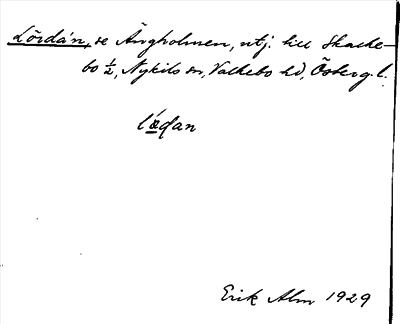 Lördán, se Ängholmen, utj. till Skacke-
bo ½, Nykils sn, Valkebo hd, Österg. l.
lædan
Erik Alm 1929